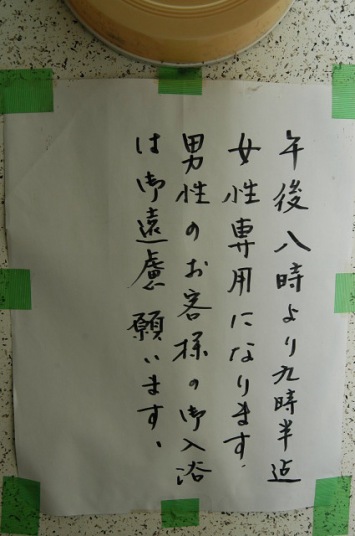 午後八時より九時半迠
女性専用になります.
男性のお客様の御入浴
は御遠慮願います.